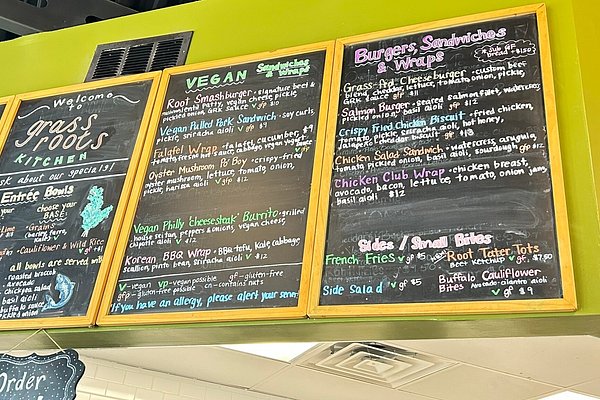 Welcome
to
grass
roots
KITCHEN
ask about our specials!
Entrée Bowls
your
choose your
BASE:
Grains
(barley, farro,
Kale)
Cauliflower & Wild Rice
all bowls are served with
roasted broccoli
Avocado
Chickpea salad
basil aioli
pickled onion
Order
VEGAN Sandwiches
& Wraps
Root Smashburger - signature beef &
pickled onion, GRK Sauce
Vegan Pulled Pork Sandwich - soy curls,
pickle, sriracha aioli V $9
Falafel Wrap - falafel, cucumber,
Oyster Mushroom Po'Boy - crispy-fried
oyster mushroom, lettuce, tomato, onion,
pickle, harissa aioli V gfp $12
Vegan Philly 'Cheesesteak' Burrito - grilled
house seitan, peppers & onions, vegan cheese,
chipotle aioli V $12
Korean BBQ Wrap - BBQ tofu, kale, cabbage
scallion, pinto bean, sriracha aioli V gfp $12
V - vegan vp - vegan possible gf - gluten-free
gfp - gluten-free possible cn - contains nuts
If you have an allergy, please alert your server
Burgers, Sandwiches
& Wraps
* Sub GF
bread + $1.50
Grass-Fed Cheeseburger - custom beef
blend, cheddar, lettuce, tomato, onion, pickle,
GRK sauce
Salmon Burger - seared salmon filet, watercress,
pickled onion, basil aioli gfp $12
Crispy Fried Chicken Biscuit - fried chicken,
tomato, pickle, sriracha aioli, hot honey,
jalapeño cheddar biscuit
Chicken Salad Sandwich - watercress, arugula,
tomato, pickled onion, basil aioli, sourdough gfp $12
Chicken Club Wrap - chicken breast,
avocado, bacon, lettuce, tomato, onion jam,
basil aioli $12
Sides / Small Bites
French Fries V gf $5
Root Tater Tots
Beet Ketchup V gf $7.50
Side Salad V gf $5
Buffalo Cauliflower
Bites Avocado-cilantro aioli
V gf $9